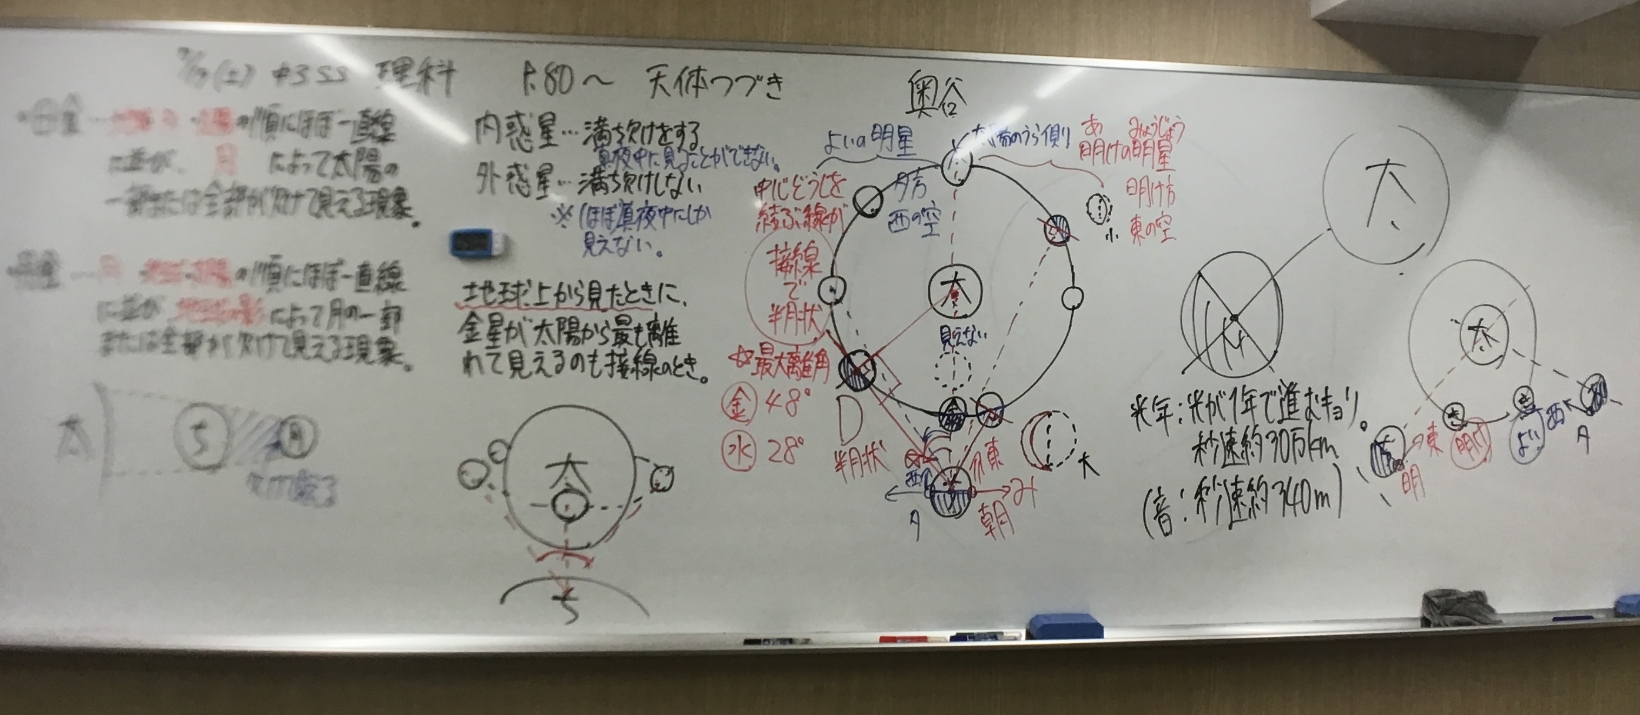 (土) 中3SS 理科 P.80～ 天体つづき
奥谷
の順にほぼ一直線
に並び、月によって太陽の
一部または全部が欠けて見える現象。
の順にほぼ一直線
に並び
によって月の一部
または全部が欠けて見える現象。
太
ち
月
内惑星…満ち欠けをする
真夜中に見ることができない。
外惑星…満ち欠けしない
※ほぼ真夜中にしか
見えない。
地球上から見たときに、
金星が太陽から最も離
れて見えるのも接線のとき。
太
ち
よいの明星
夕方
西の空
太陽のうら側
あ みょうじょう
明けの明星
明け方
東の空
小
中心どうしを
結ぶ線が
接線
で
半月状
☆最大離角
金 48°
水 28°
太
見えない
金
半月状
西
東
夕
朝
大
太
光年:光が1年で進むキョリ。
秒速約30万km
(音:秒速約340m)
太
東
明け
よい
西
夕
明